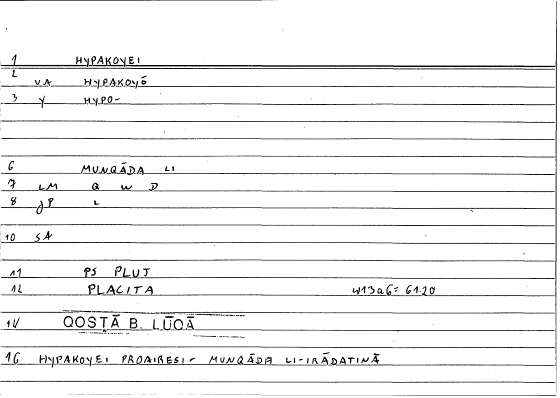 1 HYPAKOYEI
2 VA HYPAKOYŌ
3 Y HYPO-
6 MUNQĀDA LI
7 LM Q W D
8 JP L
10 SA
11 PS PLUT
12 PLACITA 413a6= 61.20
14 QOSṬĀ B. LŪQĀ
16 HYPAKOYEI PROAIRESI- MUNQĀDA LI-IRĀDATINĀ